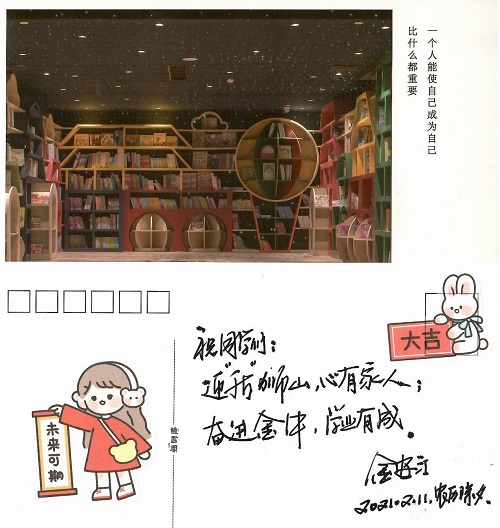 一个人能使自己成为自己
比什么都重要
大吉
祝同学们：
狮山，心有家人；
奋进金牛，学业有成。
2021.2.11，农历除夕。
未来可期